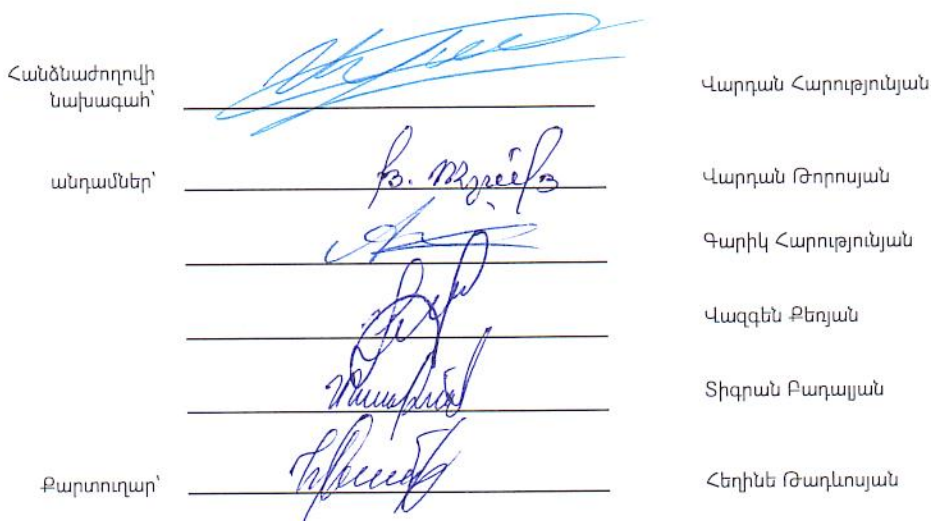 Հանձնաժողովի
նախագահ՝ Վարդան Հարությունյան
անդամներ՝ Վարդան Թորոսյան
Գարիկ Հարությունյան
Վազգեն Քեռյան
Տիգրան Բադալյան
Քարտուղար՝ Հեղինե Թադևոսյան